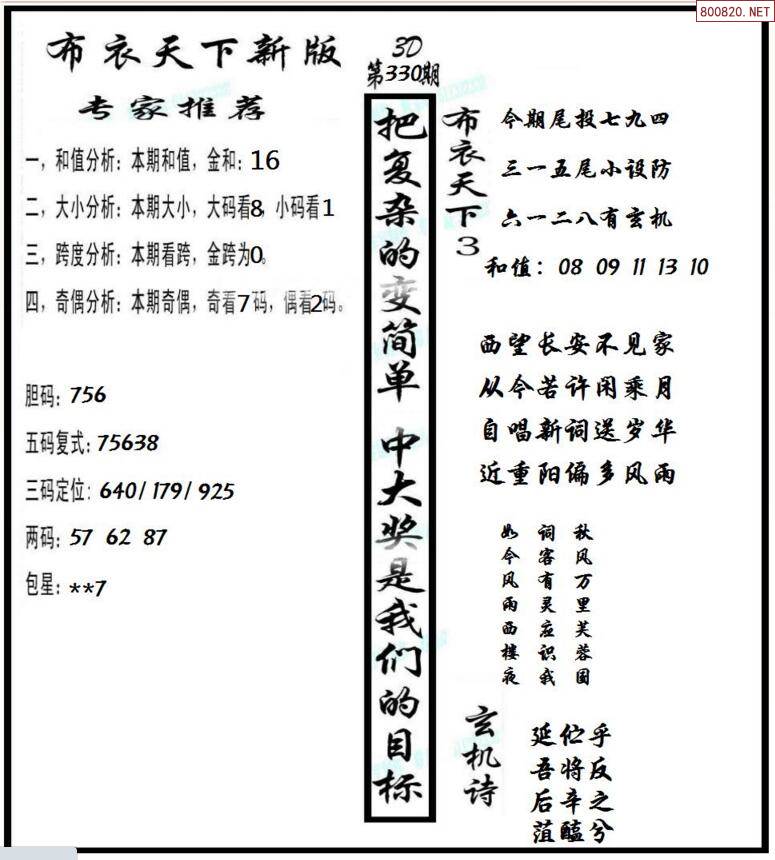 800820.NET
布衣天下新版
专家推荐
一，和值分析：本期和值，金和：16
二，大小分析：本期大小，大码看8，小码看1
三，跨度分析：本期看跨，金跨为0。
四，奇偶分析：本期奇偶，奇看7码，偶看2码。
胆码：756
五码复式：75638
三码定位：640/179/925
两码：57 62 87
包星：**7
3D
第330期
把复杂的变简单 中大奖是我们的目标
布衣天下3
今期尾投七九四
三一五尾小设防
六一二八有玄机
和值：08 09 11 13 10
西望长安不见家
从今若许闲乘月
自唱新词送岁华
近重阳偏多风雨
秋风万里芙蓉国
词客有灵应识我
如今风雨西楼夜
玄机诗
延伫乎
吾将反
后辛之
菹醢兮